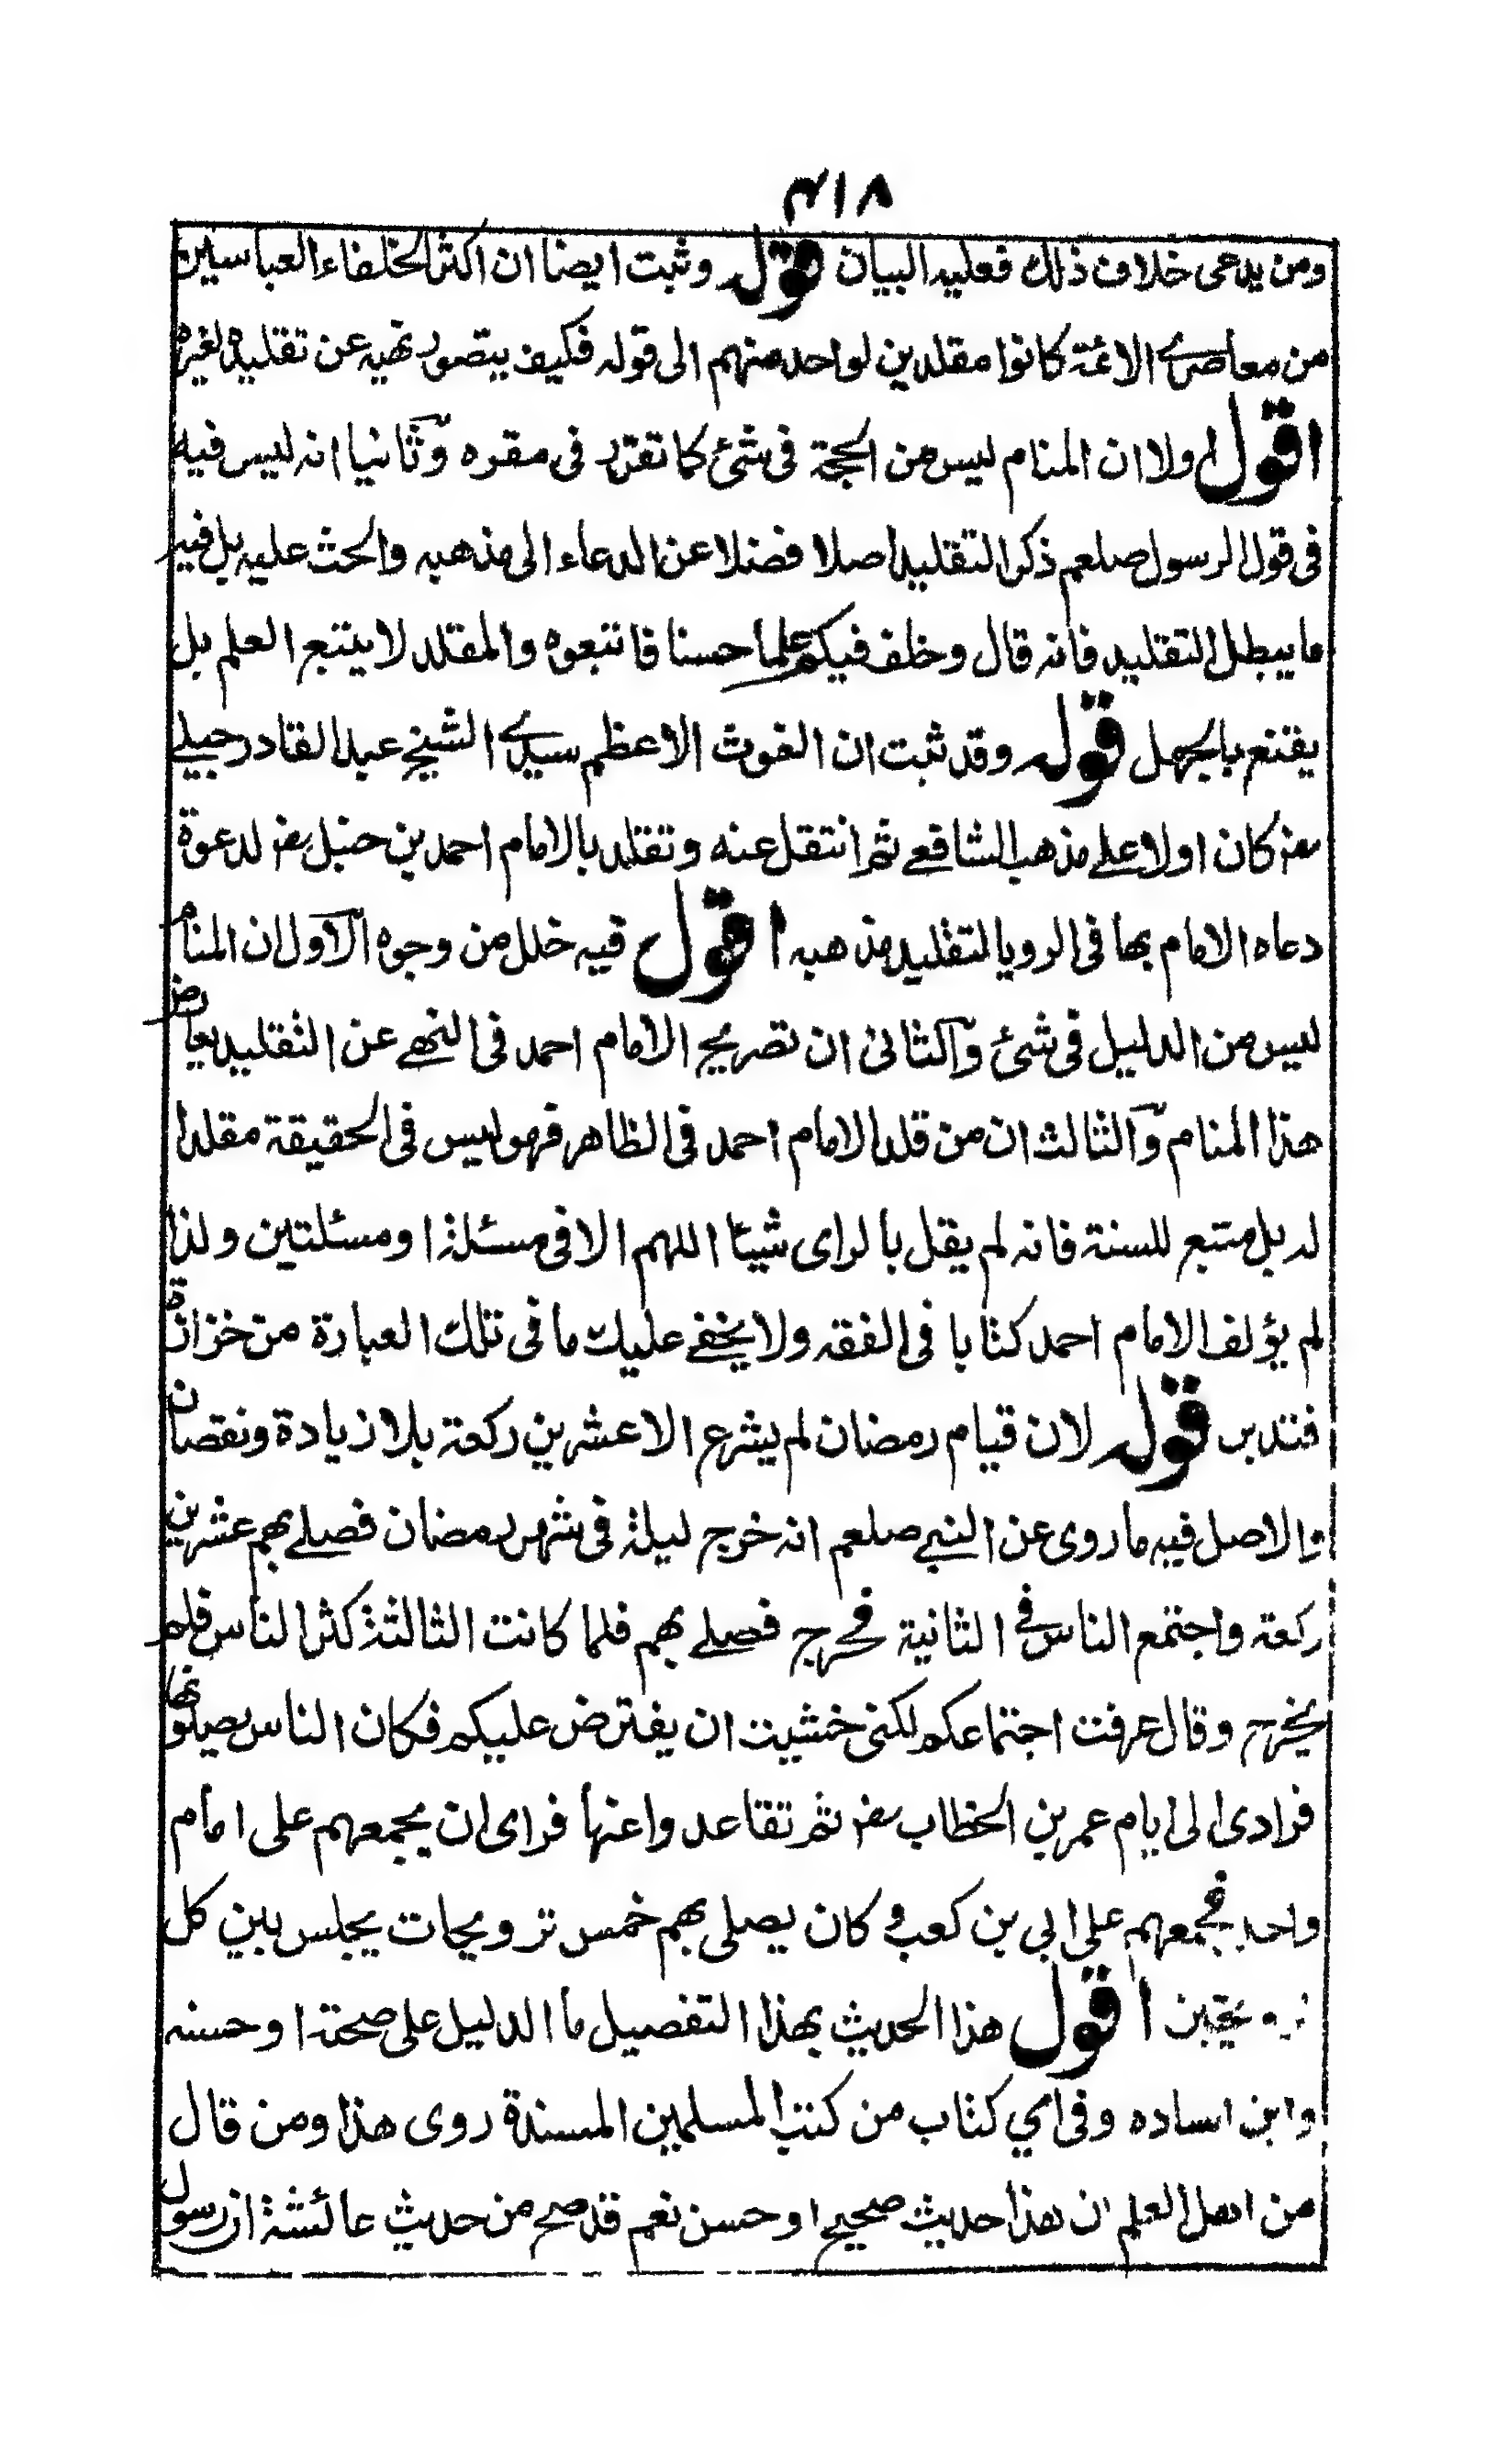 ٤١٨
ومن يدعى خلاف ذلك فعليه البيان قوله وثبت ايضا ان اكثر الخلفاء العباسيين
من معاصرے الائمة كانوا مقلدين لواحد منهم الى قوله فكيف يتصور نهيه عن تقليده لغيره
اقول اولا ان المنام ليس من الحجة فى شئ كما تقرر فى مقره وثانيا انه ليس فيه
فى قول الرسول صلعم ذكر التقليد اصلا فضلا عن الدعاء الى مذهبه والحث عليه بل فيه
ما يبطل التقليد فانه قال وخلف فيكم علما حسنا فاتبعوه والمقلد لا يتبع العلم بل
يقتنع بالجهل قوله وقد ثبت ان الغوث الاعظم سيدے الشيخ عبد القادر جيلے
رض كان اولا علے مذهب الشافعے ثم انتقل عنه وتقلد بالامام احمد بن حنبل رض لدعوة
دعاه الامام بها فى الرويا لتقليد مذهبه اقول فيه خلل من وجوه الاول ان المنام
ليس من الدليل فى شئ والثانى ان تصريح الامام احمد فى النهے عن التقليد يعارض
هذا المنام والثالث ان من قلد الامام احمد فى الظاهر فهو ليس فى الحقيقة مقلدا
له بل متبع للسنة فانه لم يقل بالراى شيئا اللهم الا فى مسئلة او مسئلتين ولذا
لم يؤلف الامام احمد كتابا فى الفقه ولا يخفے عليك ما فى تلك العبارة من خزازة
فتدبر قوله لان قيام رمضان لم يشرع الا عشرين ركعة بلا زيادة ونقصان
والاصل فيه ما روى عن النبے صلعم انه خرج ليلة فى شهر رمضان فصلے بهم عشرين
ركعة واجتمع الناس فے الثانية فخرج فصلے بهم فلما كانت الثالثة كثر الناس فلم
يخرج وقال عرفت اجتماعكم لكنى خشيت ان يفترض عليكم فكان الناس يصلونها
فرادى الى ايام عمر بن الخطاب رض ثم تقاعدوا عنها فراى ان يجمعهم على امام
واحد فجمعهم على ابي بن كعب وكان يصلى بهم خمس ترويحات يجلس بين كل
ترويحتين اقول هذا الحديث بهذا التفصيل ما الدليل على صحته او حسنه
واين اسناده وفى اي كتاب من كتب المسلمين المسندة روى هذا ومن قال
من اهل العلم ان هذا حديث صحيح او حسن نعم قد صح من حديث عائشة ان رسول